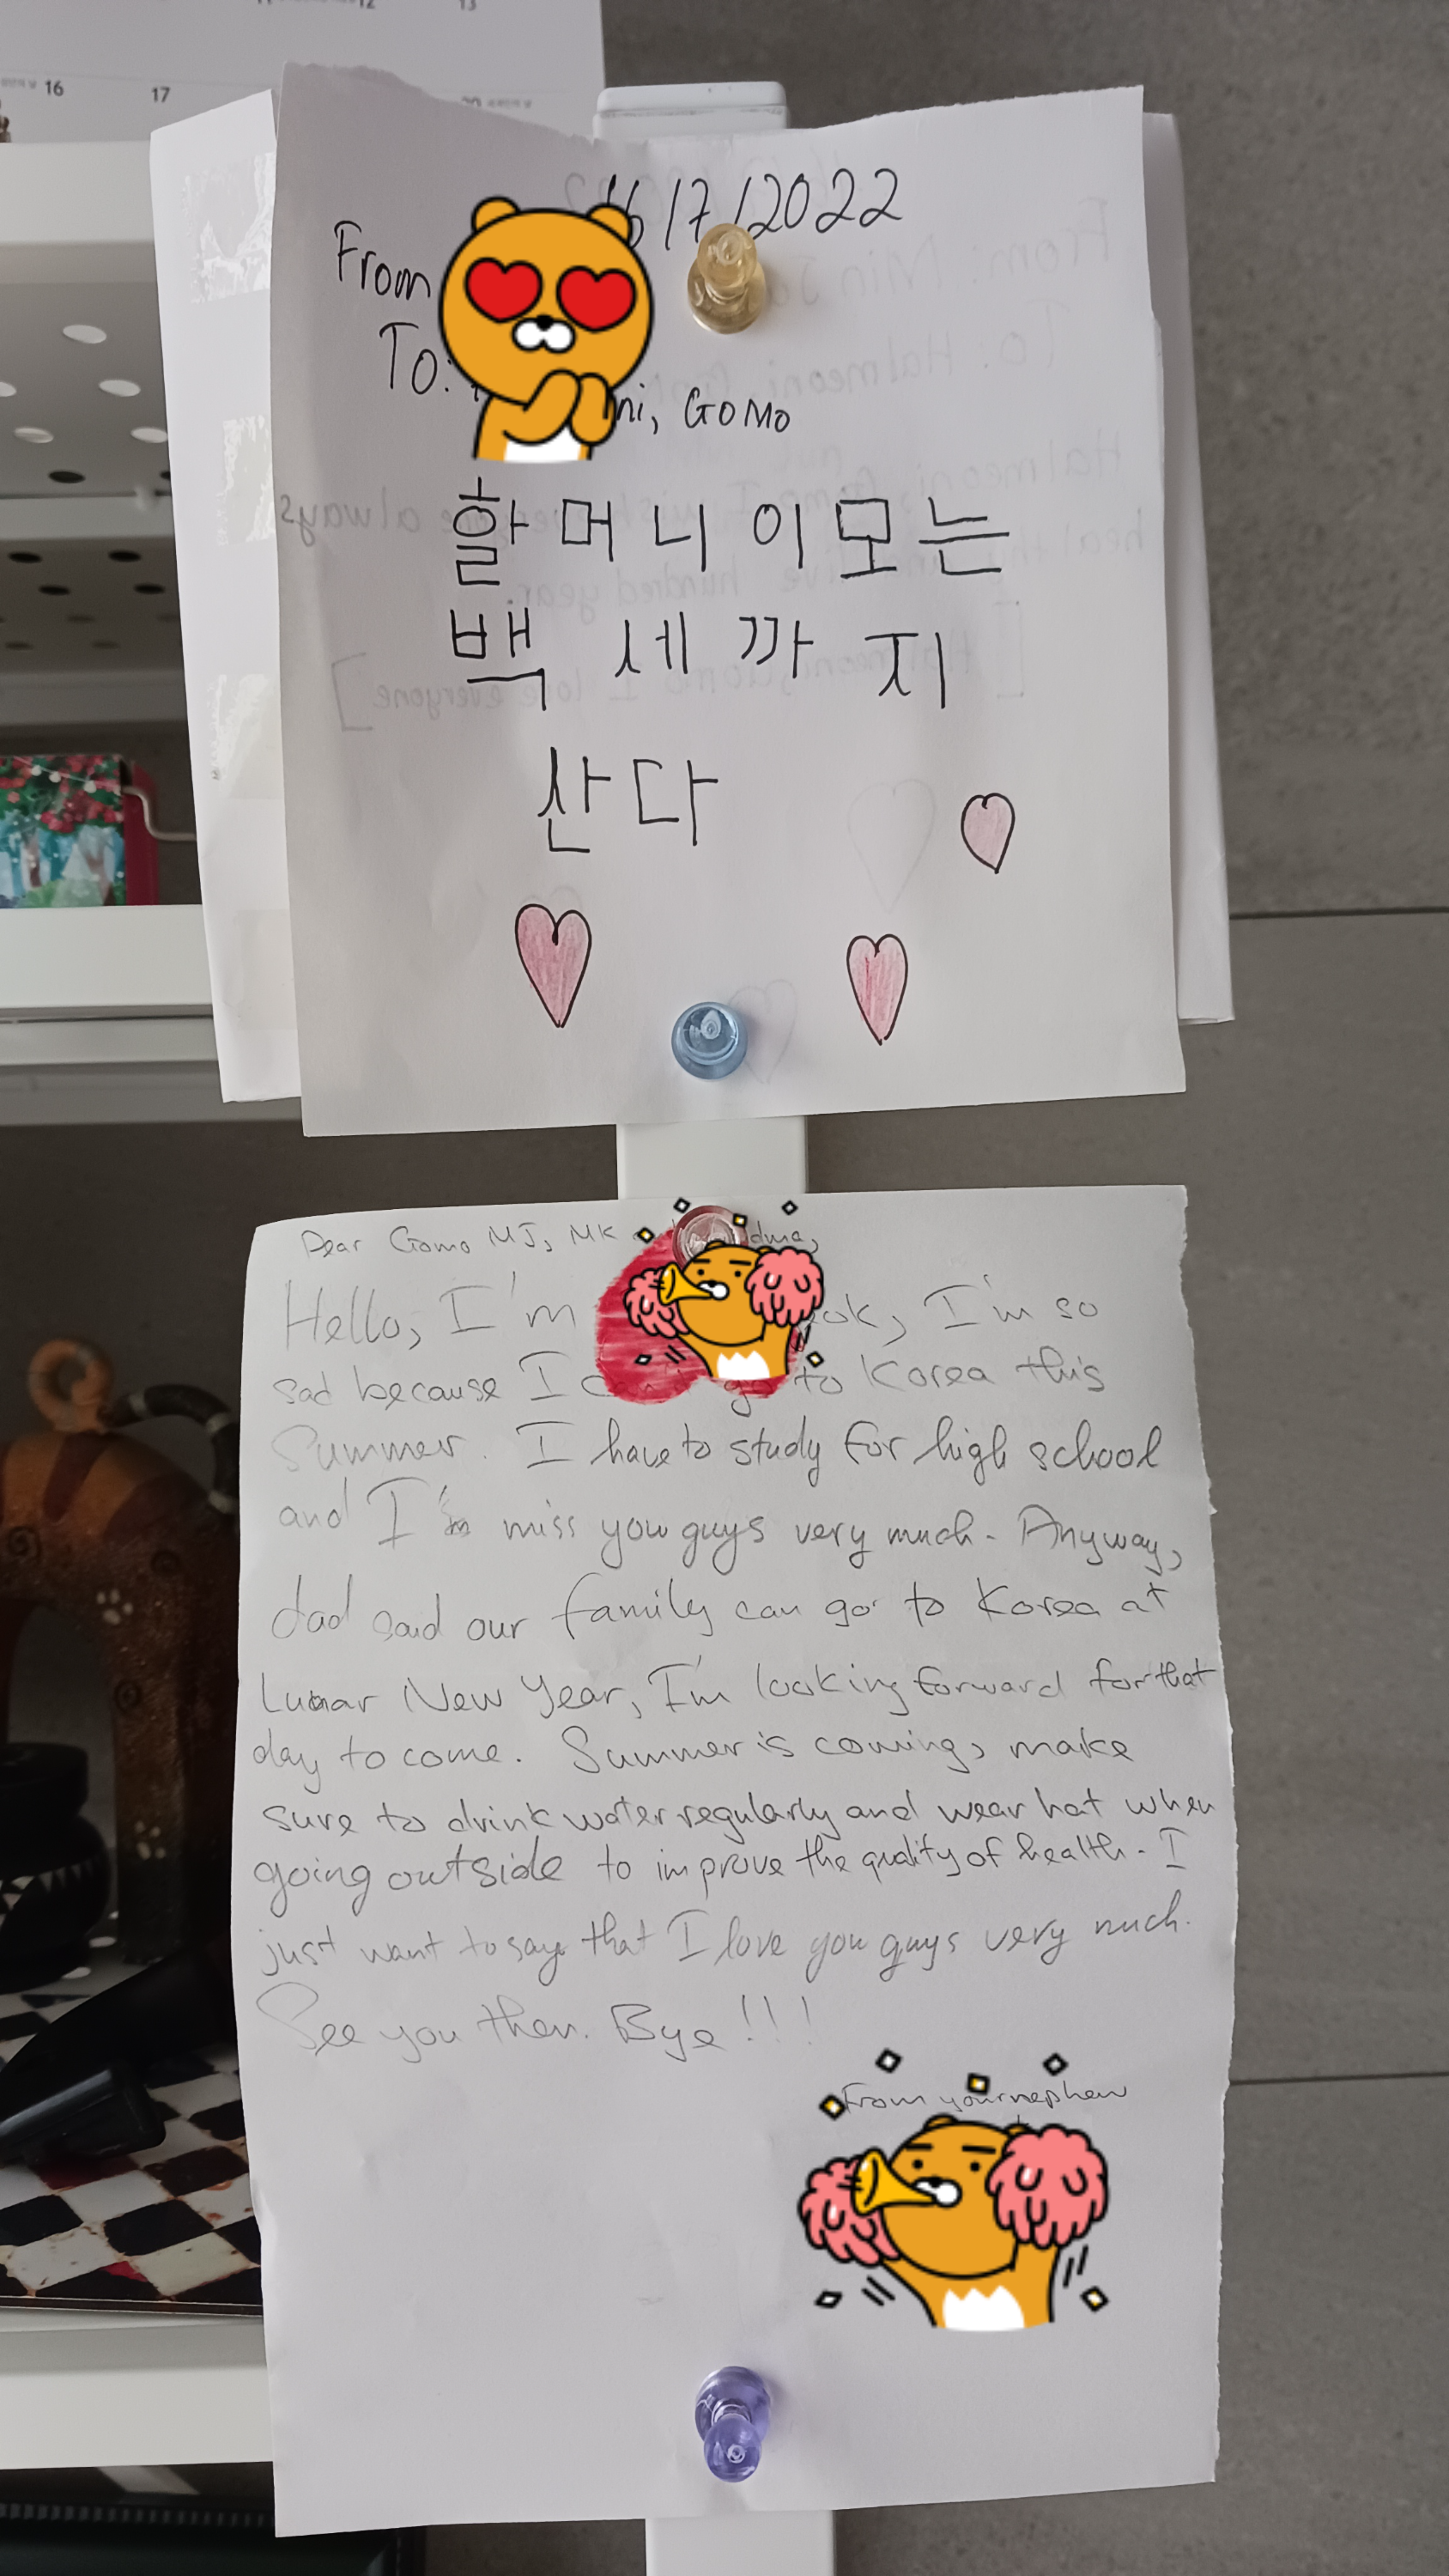 16
17
16/7/2022
From
To:
ni, Gomo
할머니 이모는
백세까지
산다
Dear Gomo MJ, MK dma,
Hello, I'm ook, I'm so
sad because I go to Korea this
Summer. I have to study for high school
and I'm miss you guys very much. Anyway,
dad said our family can go to Korea at
Lunar New Year, I'm looking forward for that
day to come. Summer is coming, make
sure to drink water regularly and wear hat when
going outside to improve the quality of health. I
just want to say that I love you guys very much.
See you then. Bye!!!
From your nephew